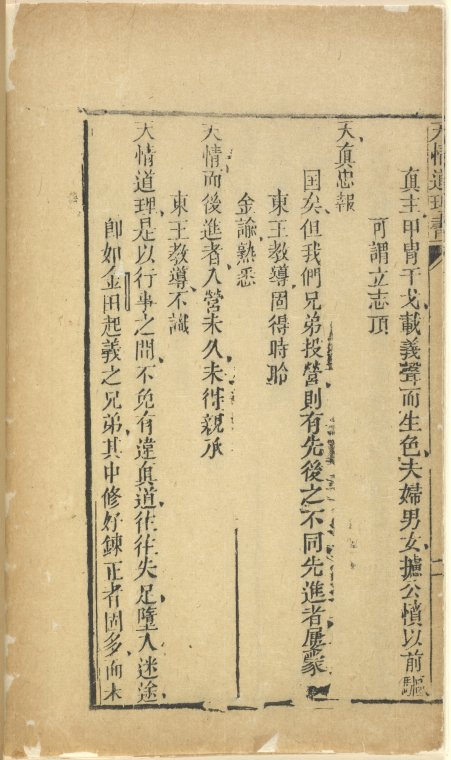 天情道理書
二
真主甲冑干戈載義聲而生色夫婦男女攄公憤以前驅
可謂立志頂
天真忠報
国矣但我們兄弟投營則有先後之不同先進者屢蒙
東王教導固得時聆
金諭熟悉
天情而後進者入營未久未得親承
東王教導不識
天情道理是以行事之間不免有違真道往往失足墮入迷途
即如金田起義之兄弟其中修好鍊正者固多而未